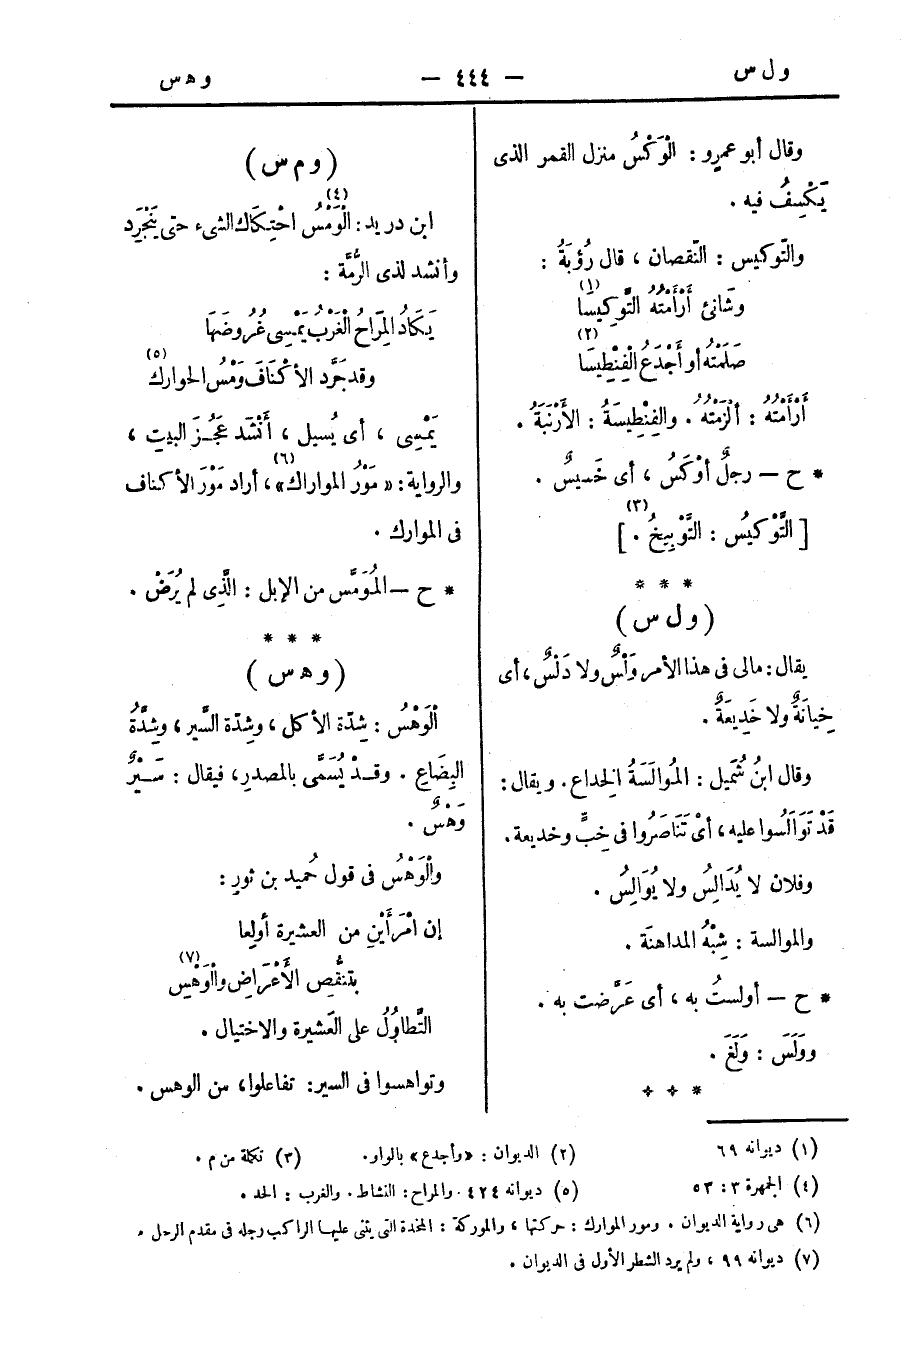 ول س — ٤٤٤ — وهس
وقال أبو عمرو : الْوَكْسُ منزل القمر الذى
يَكْسِفُ فيه .
والتّوكيس : النّقصان ، قال رُؤبَةُ :
وشَانئٍ أَرْأَمْتُهُ التَّوكِيسَا (١)
صَلَمْتُه أو أَجْدَعُ الْفِنْطِيسَا (٢)
أَرْأَمْتُهُ : أَلْزَمْتُهُ . والفِنْطِيسَةُ : الأَرْنَبَةُ .
* ح — رجلٌ أَوْكَسُ ، أى خَسيسٌ .
[ التَّوْكيسُ : التَّوْبِيخُ (٣) . ]
* * *
( ول س )
يقال : مالى فى هذا الأمر وَلْسٌ ولا دَلْسٌ ، أى
خِيانَةٌ ولا خَدِيعَةٌ .
وقال ابنُ شُمَيل : الْمُوالَسَةُ الخِداع . ويقال :
قَدْ تَوَالَسُوا عليه ، أىْ تَنَاصَرُوا فى خِبٍّ وخديعة .
وفلان لا يُدَالِسُ ولا يُوَالِسُ .
والموالسة : شِبْهُ المداهنَة .
* ح — أولستُ به ، أى عَرَّضت به .
ووَلَسَ : وَلَغَ .
* * *
( وم س )
ابن دريد : الْوَمْسُ (٤) احْتِكَاك الشىء حتى يَنْجَرِد
وأنشد لذى الرُّمَّة :
يَكَادُ المِرَاحُ الْغَرْبُ يَمْسِى غُرُوضَهَا
وقد جَرَّد الأكْنَافَ وَمْسُ الحوارك (٥)
يَمْسِى ، أى يُسيل ، أَنْشَد عَجُـزَ البيت ،
والرواية : « مَوْرُ المواراك (٦) » ، أراد مَوْرَ الأكناف
فى الموارك .
* ح — المُوَمَّس من الإبل : الَّذِى لم يُرَضْ .
* * *
( وهس )
الْوَهْسُ : شِدّة الأكل ، وشِدّة السَّير ، وشِدَّةُ
البِضَاعِ . وقـدْ يُسَمَّى بالمصدرِ ، فيقال : سَـيْرٌ
وَهْسٌ .
والْوَهْسُ فى قول حُميد بن ثورٍ :
إن امْرَأَيْنِ من العشيرة أولِعا
بتنقُّصِ الأَعْرَاضِ والْوَهْسِ (٧)
التَّطاوُلُ على العَشيرة والاختيال .
وتواهسوا فى السير : تفاعلوا ، من الوهس .
(١) ديوانه ٦٩ (٢) الديوان : «وأجدع» بالواو . (٣) تكلة من م .
(٤) الجمهرة ٣ : ٥٣ (٥) ديوانه ٤٢٤ . والمراح : النشاط . والغرب : الحد .
(٦) هى رواية الديوان . ومور الموارك : حركتها ، والموركة : المخدة التى يثنى عليها الراكب رجله فى مقدم الرحل .
(٧) ديوانه ٩٩ ، ولم يرد الشطر الأول فى الديوان .